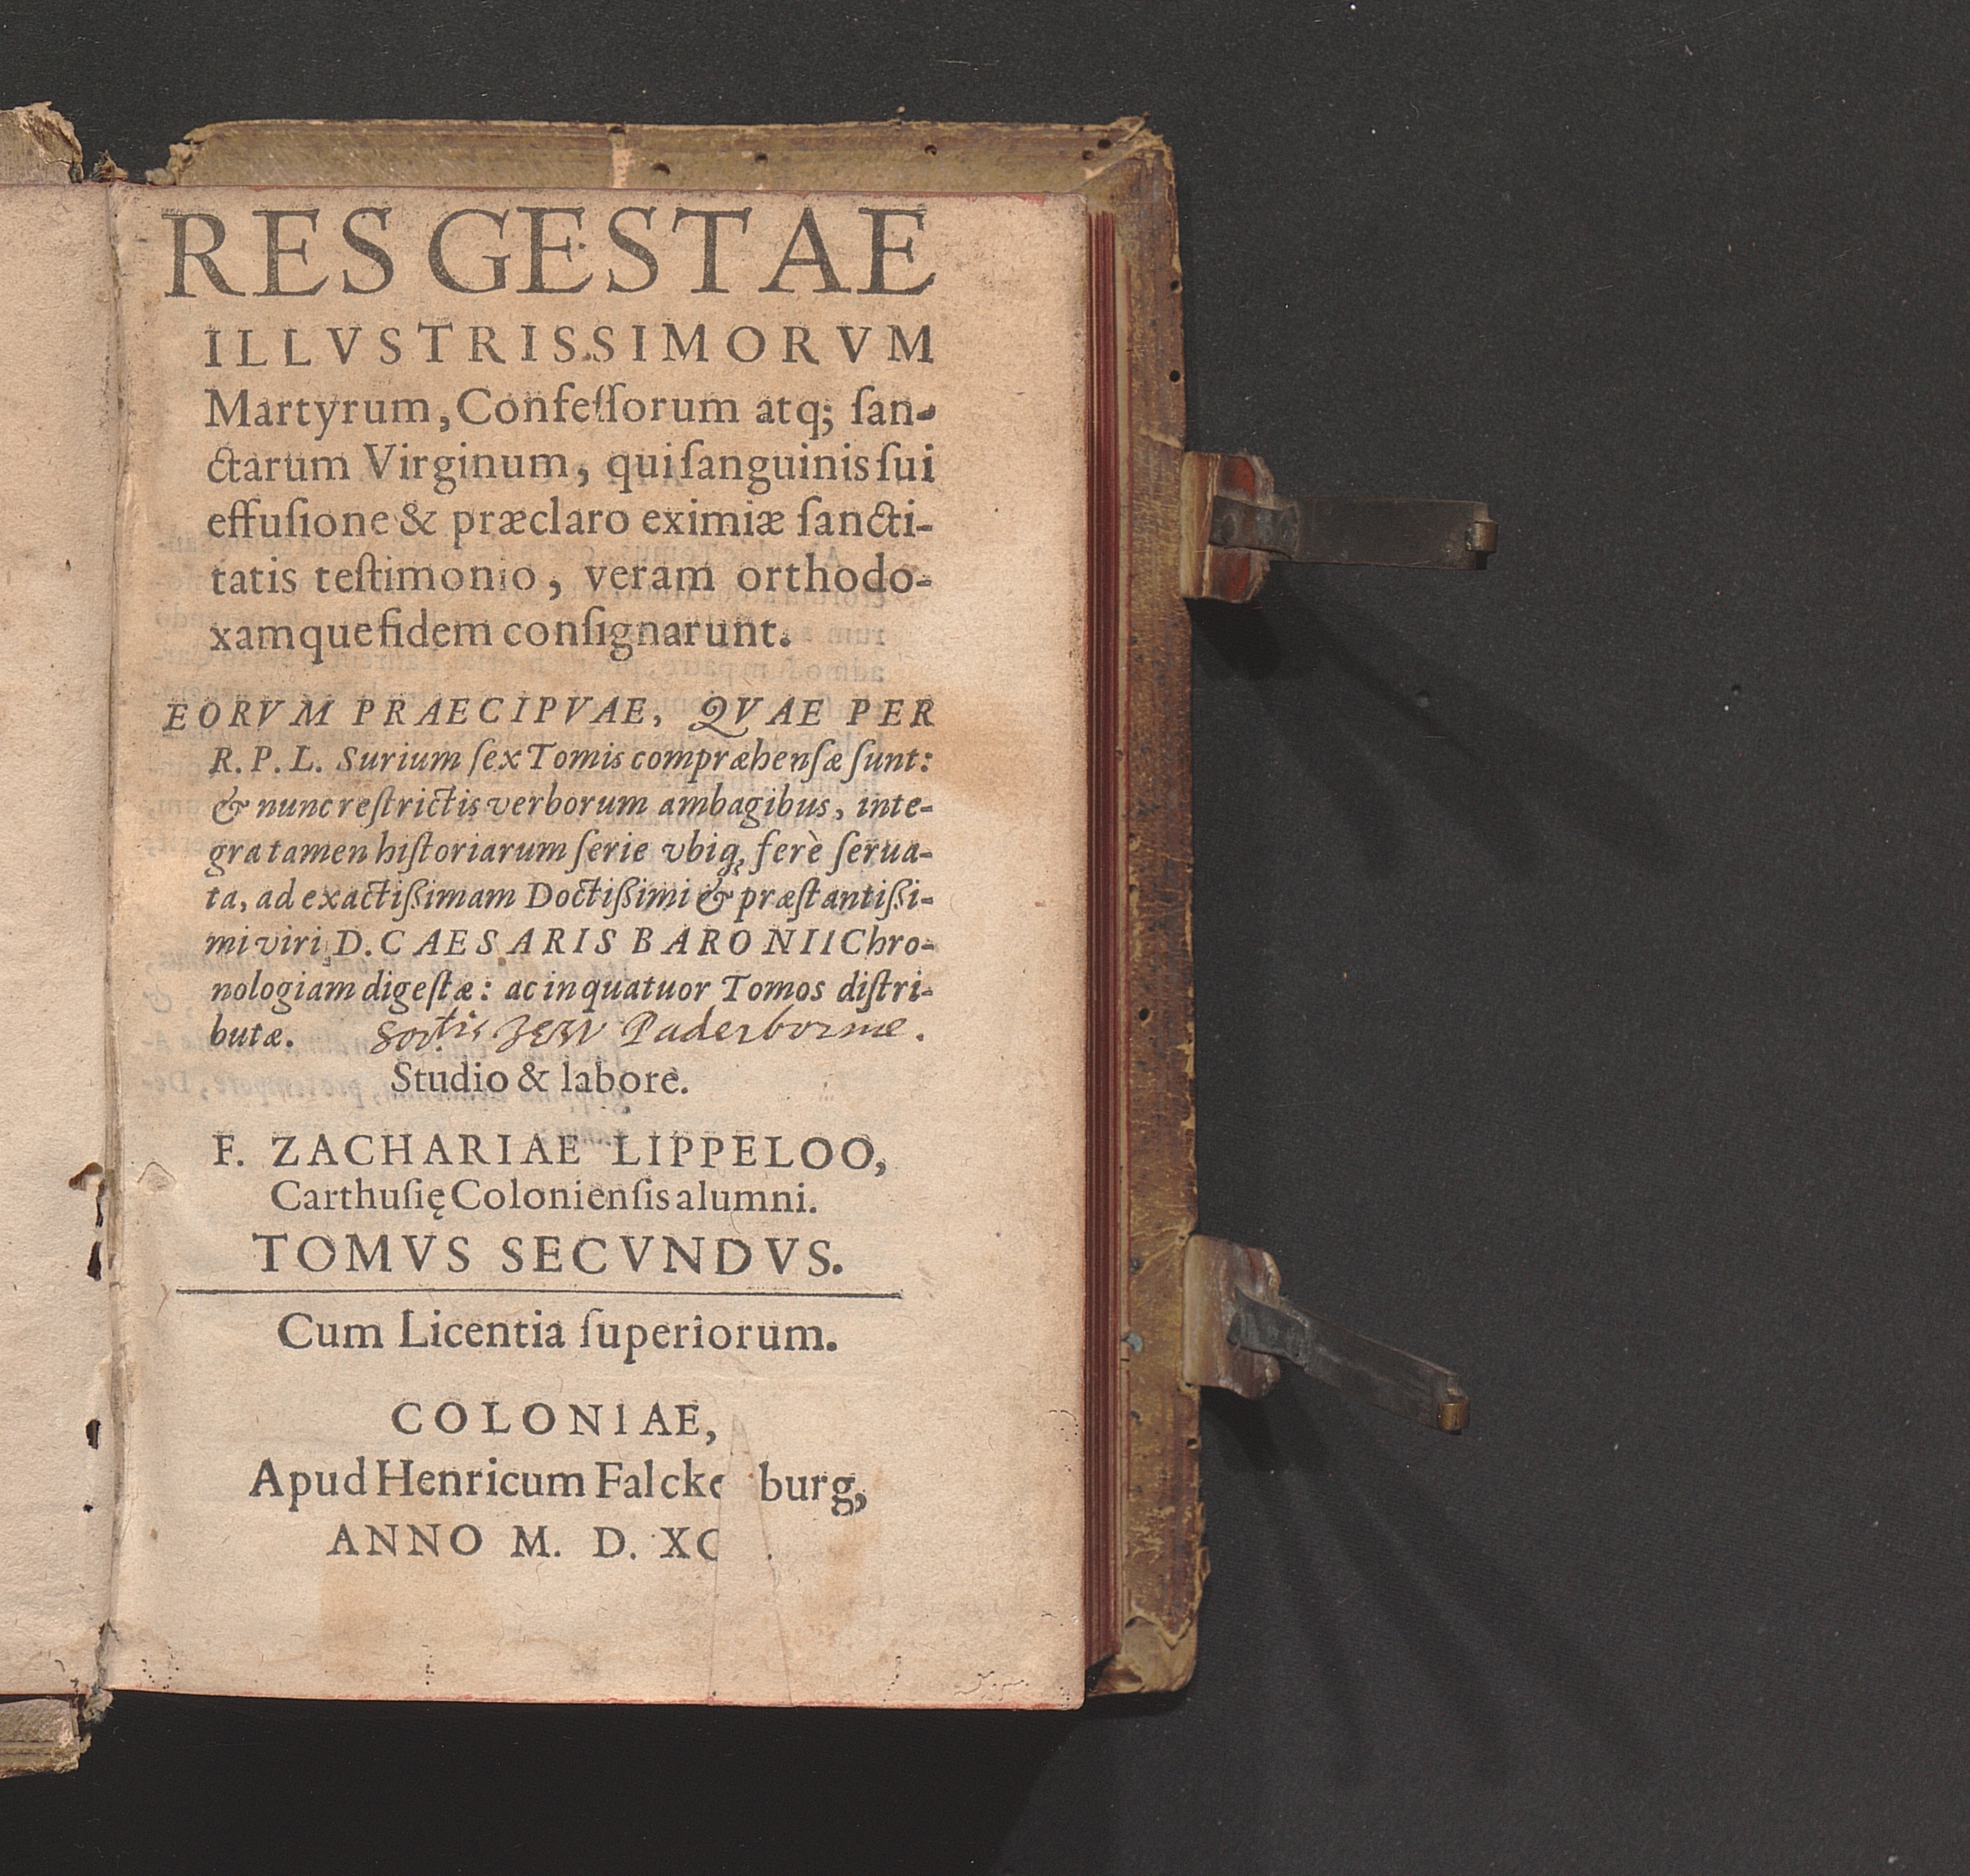 RES GESTAE
ILLVSTRISSIMORVM
Martyrum, Confeſſorum atq; ſan-
ctarum Virginum, qui ſanguinis ſui
effuſione & præclaro eximiæ ſancti-
tatis teſtimonio, veram orthodo-
xamque fidem conſignarunt.
EORVM PRAECIPVAE, QVAE PER
R. P. L. Surium ſex Tomis compræhenſæ ſunt:
& nunc reſtrictis verborum ambagibus, inte-
gra tamen hiſtoriarum ſerie vbiq; ferè ſerua-
ta, ad exactiſſimam Doctiſſimi & præſtantiſſi-
mi viri, D. CAESARIS BARONII Chro-
nologiam digeſtæ: ac in quatuor Tomos diſtri-
butæ. Soctis Jesu Paderbornæ.
Studio & labore.
F. ZACHARIAE LIPPELOO,
Carthuſię Colonienſis alumni.
TOMVS SECVNDVS.
Cum Licentia ſuperiorum.
COLONIAE,
Apud Henricum Falcke burg,
ANNO M. D. XC .